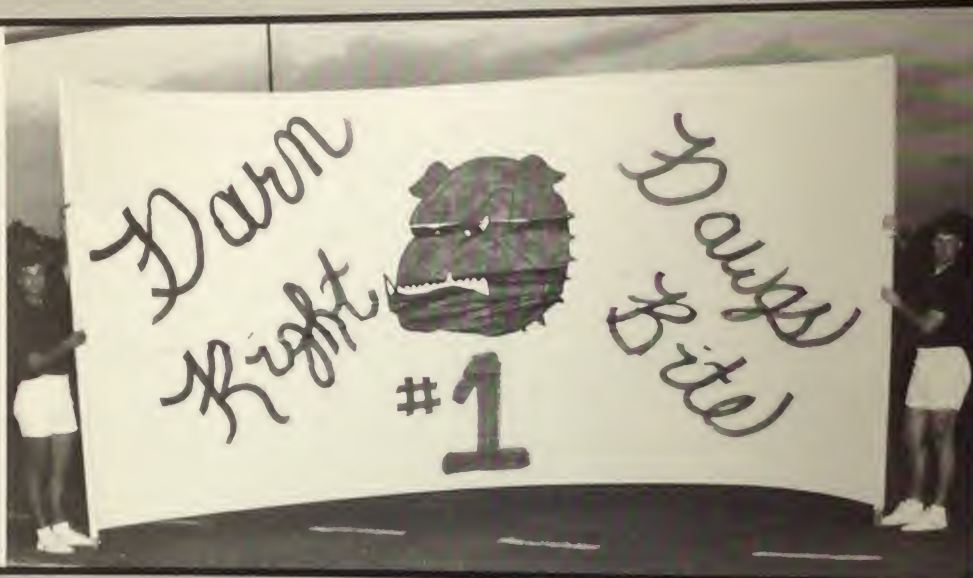 Darn
Right
#1
Dawgs
Bite